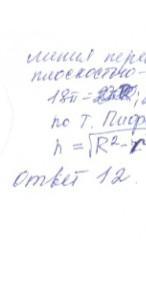 линия пере
плоскостью-
18π=
по т. Пифа
h = √R²-r
Ответ 12.